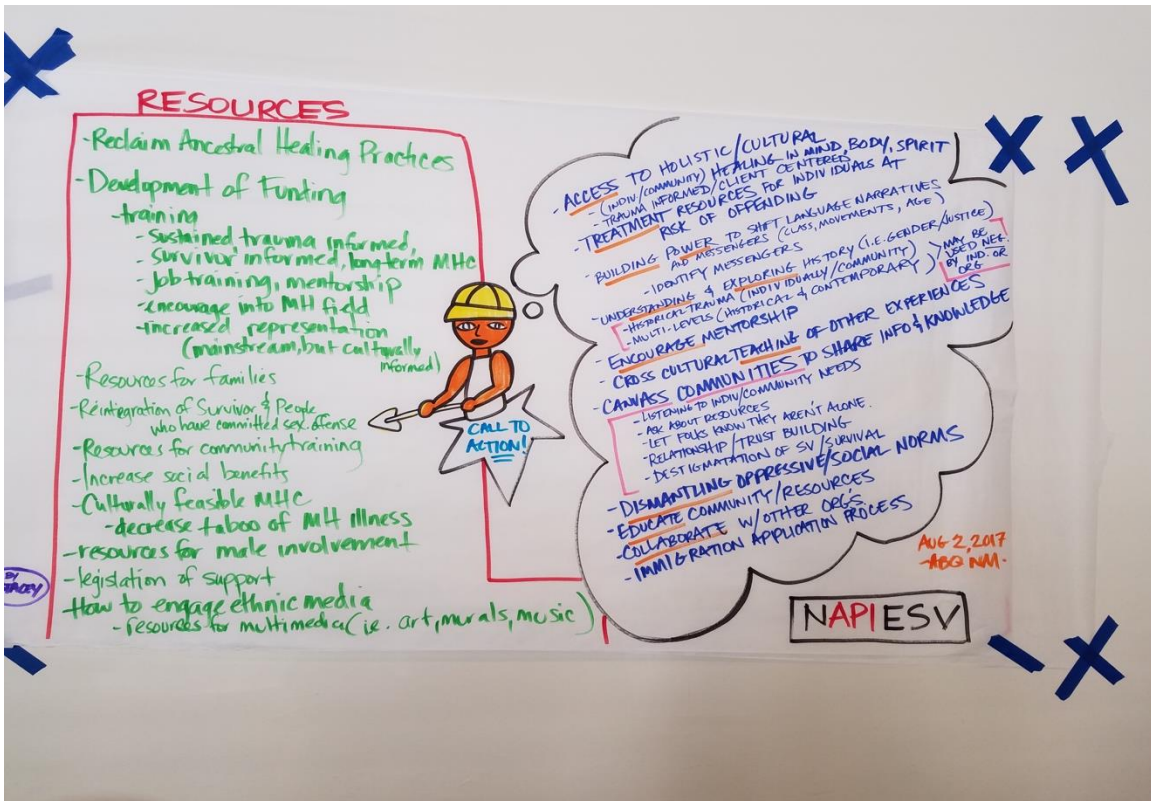 RESOURCES
-Reclaim Ancestral Healing Practices
-Development of Funding
-training
-sustained trauma informed,
-survivor informed, long-term MHC
-job training, mentorship
-encourage into MH field
-increased representation
(mainstream, but culturally
informed)
-Resources for families
-Reintegration of Survivor & People
who have committed sex. offense
-Resources for community training
-Increase social benefits
-Culturally feasible MHC
-decrease taboo of MH illness
-resources for male involvement
-legislation of support
-How to engage ethnic media
-resources for multimedia (ie. art, murals, music)
BY
CALL TO
ACTION!
-ACCESS TO HOLISTIC/CULTURAL
-(INDIV/COMMUNITY) HEALING IN MIND, BODY, SPIRIT
-TRAUMA INFORMED/CLIENT CENTERED
-TREATMENT RESOURCES FOR INDIVIDUALS AT
RISK OF OFFENDING
-BUILDING POWER TO SHIFT LANGUAGE NARRATIVES
MESSENGERS (CLASS, MOVEMENTS, AGE)
-IDENTIFY MESSENGERS
-UNDERSTANDING & EXPLORING HISTORY (I.E. GENDER/JUSTICE)
-HISTORICAL TRAUMA (INDIVIDUALLY/COMMUNITY)
-MULTI-LEVELS (HISTORICAL & CONTEMPORARY)
MAY BE
USED NEG.
BY IND. OR
ORG
-ENCOURAGE MENTORSHIP
-CROSS CULTURAL TEACHING OF OTHER EXPERIENCES
-CANVASS COMMUNITIES TO SHARE INFO & KNOWLEDGE
-LISTENING TO INDIV/COMMUNITY NEEDS
-ASK ABOUT RESOURCES
-LET FOLKS KNOW THEY AREN'T ALONE.
-RELATIONSHIP/TRUST BUILDING
-DESTIGMATATION OF SV/SURVIVAL
-DISMANTLING OPPRESSIVE/SOCIAL NORMS
-EDUCATE COMMUNITY/RESOURCES
-COLLABORATE W/OTHER ORG'S.
-IMMIGRATION APPLICATION PROCESS
AUG 2, 2017
-ABQ NM-
NAPIESV